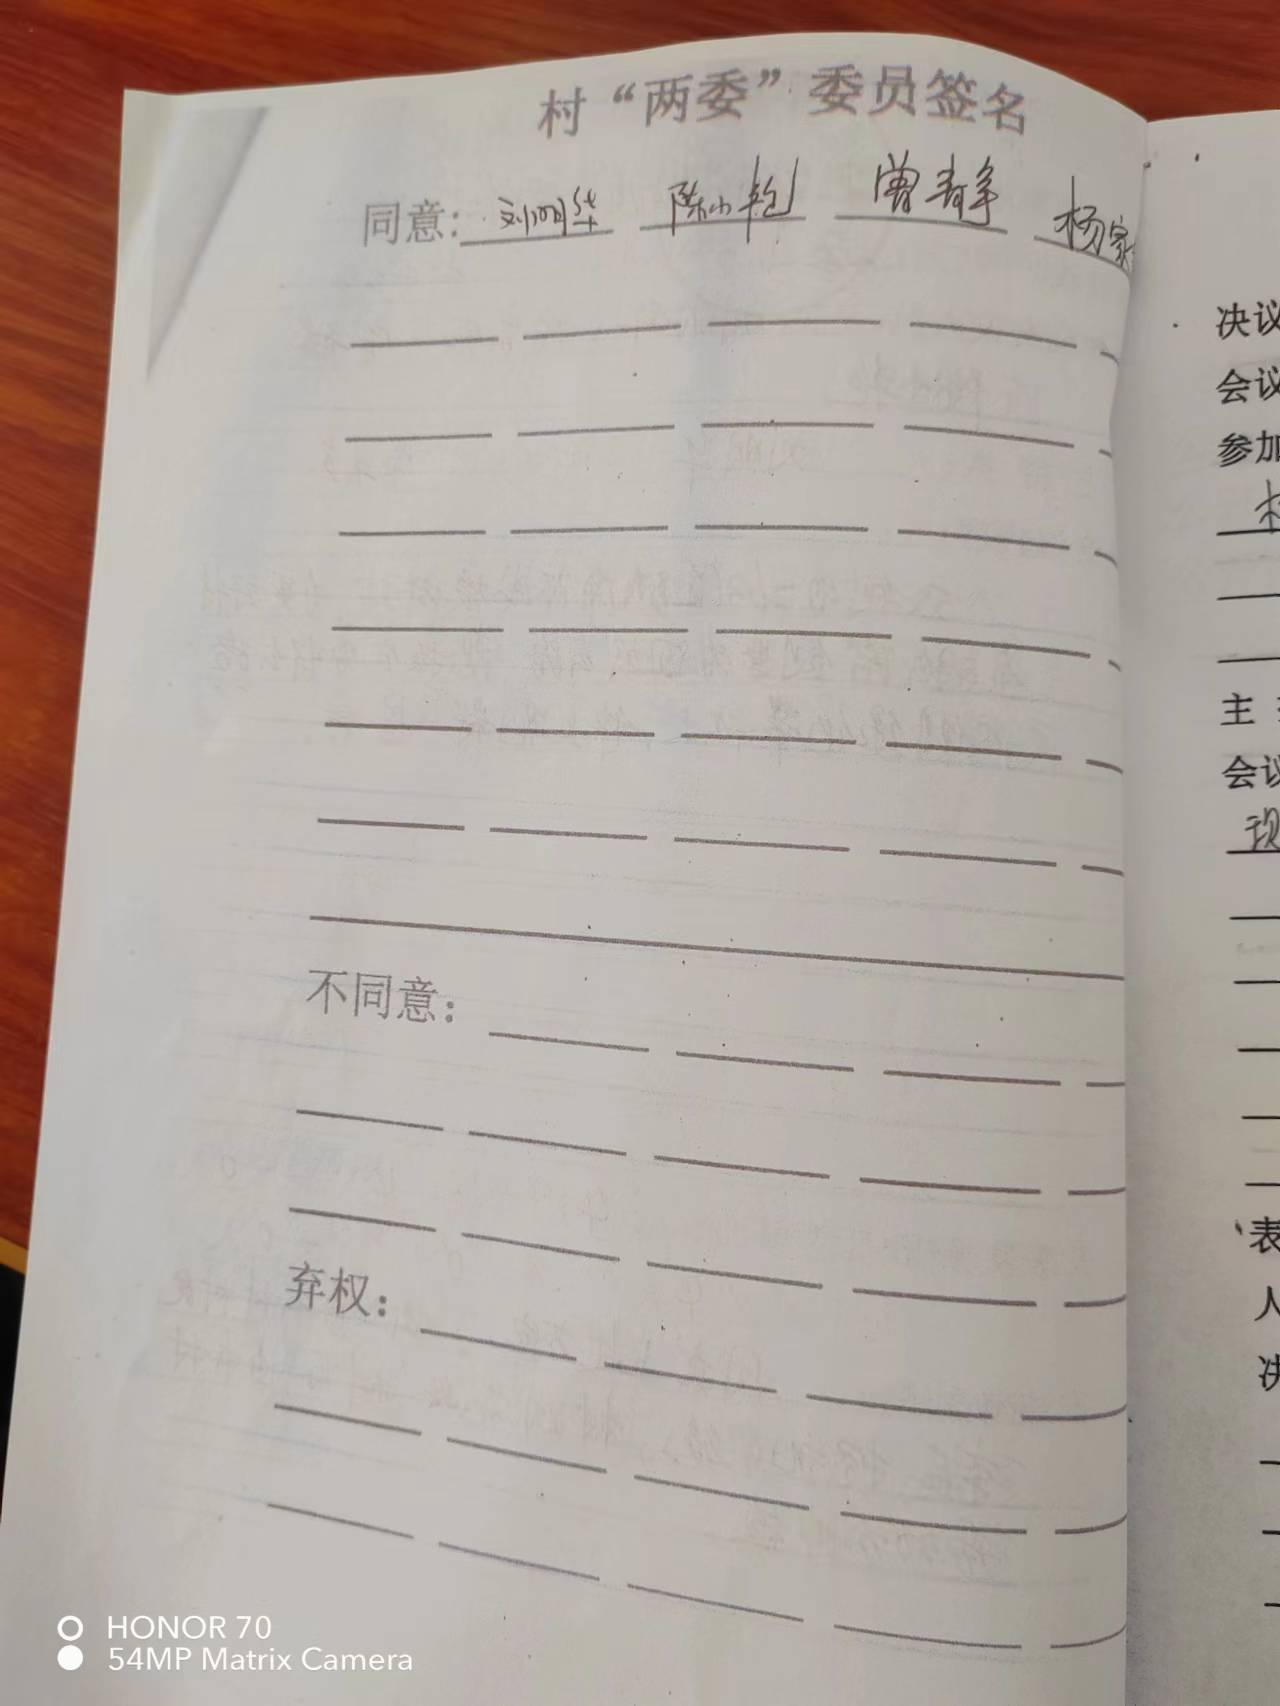 村“两委”委员签名
同意：刘明华 陈小艳 曾青争 杨家
不同意：
弃权：
决议
会议
参加
主
会议
现
表
人
决
HONOR 70
54MP Matrix Camera